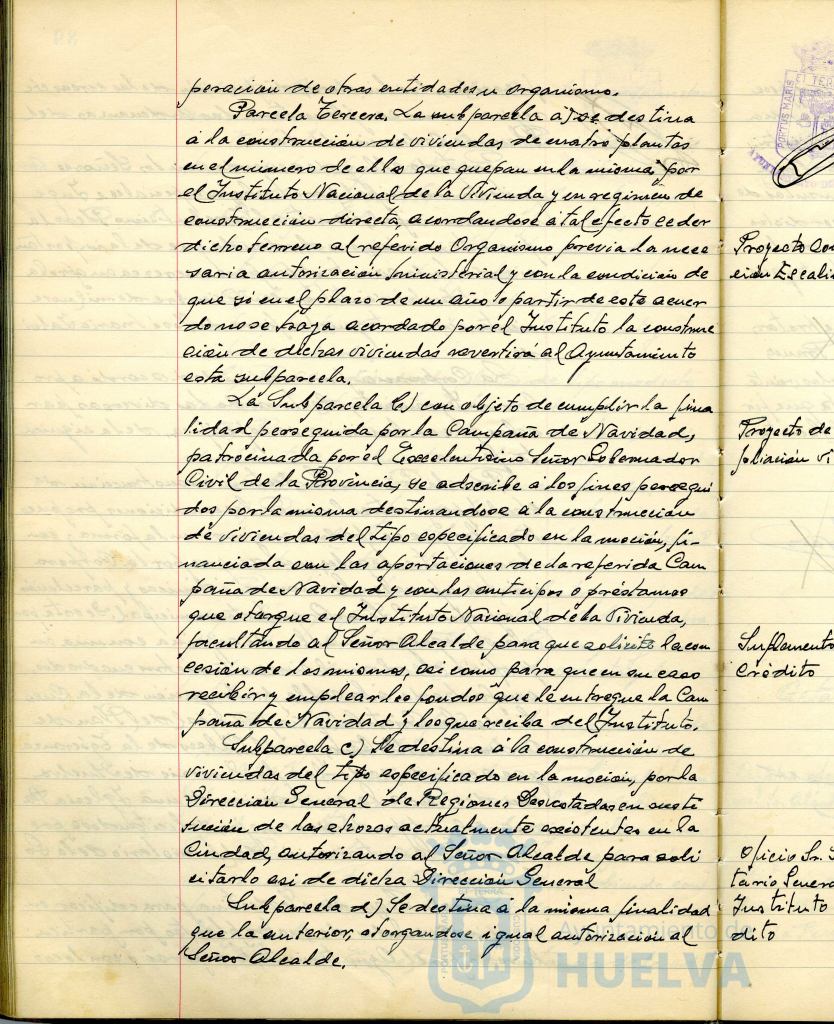 peración de otras entidades u organismo.
Parcela Tercera. La subparcela a) se destina
á la construcción de viviendas de cuatro plantas
en el número de ellas que quepan en la misma, por
el Instituto Nacional de la Vivienda y en regimen de
construcción directa, acordandose á tal efecto ceder
dicho terreno al referido Organismo previa la nece
saria autorización ministerial y con la condición de
que si en el plazo de un año a partir de este acuer
do no se haya acordado por el Instituto la construc
ción de dichas viviendas revertirá al Ayuntamiento
esta subparcela.
La Subparcela b) con objeto de cumplir la fina
lidad perseguida por la Campaña de Navidad,
patrocinada por el Excelentisimo Señor Gobernador
Civil de la Provincia, se adscribe á los fines persegui
dos por la misma destinandose á la construcción
de viviendas del tipo especificado en la moción, fi-
nanciada con las aportaciones de la referida Cam
paña de Navidad y con los anticipos o préstamos
que otorgue el Instituto Nacional de la Vivienda,
facultando al Señor Alcalde para que solicite la con
cesión de los mismos, asi como para que en su caso
recibir y emplear los fondos que le entregue la Cam
paña de Navidad y los que reciba del Instituto.
Subparcela c) Se destina á la construcción de
viviendas del tipo especificado en la moción, por la
Dirección General de Regiones Devastadas en susti
tución de las chozas actualmente existentes en la
Ciudad, autorizando al Señor Alcalde para soli
citarlo asi de dicha Dirección General
Subparcela d) Se destina á la misma finalidad
que la anterior, otorgandose igual autorización al
Señor Alcalde.
Proyecto
Proyecto de
Suplemento
Crédito
Oficio Sr. S
tario General
Instituto
dito
PORTUS MARIS
Ayuntamiento de
HUELVA